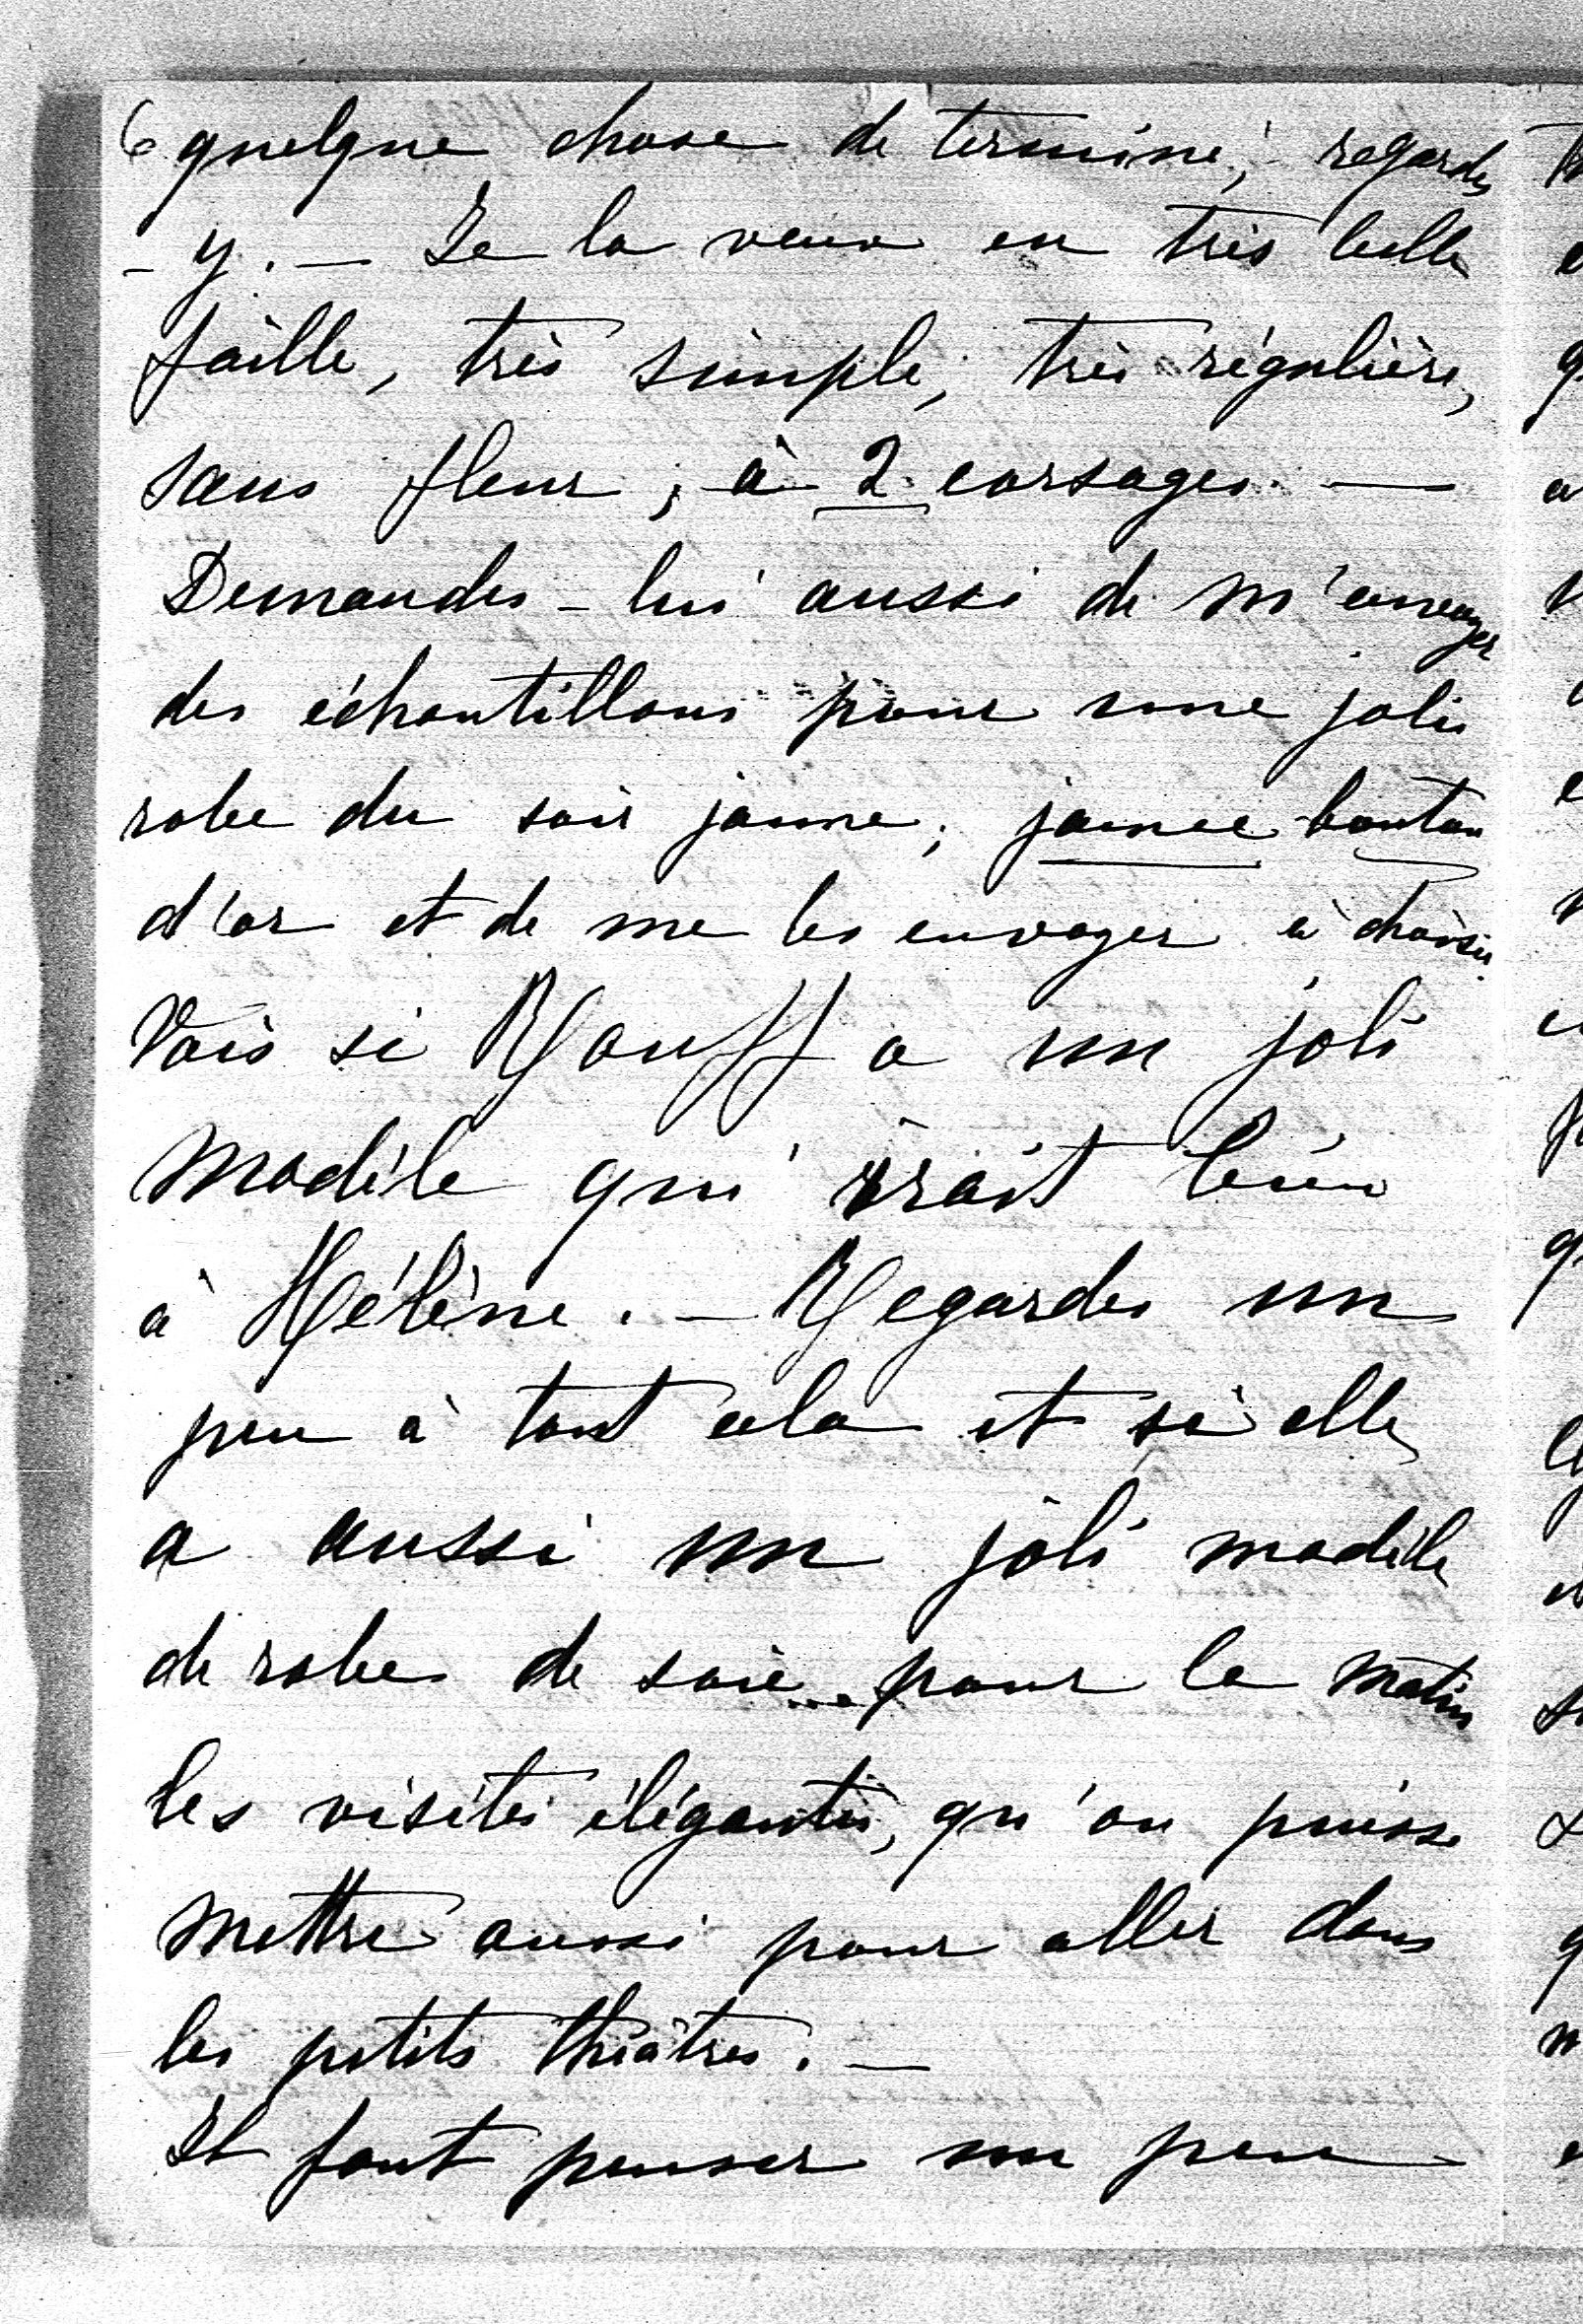 6 quelque chose de terminé, regardes
- y. — Je la veux en très belle
faille, très simple, très régulière,
sans fleur, à 2 corsages. —
Demandes-lui aussi de m'envoyer
des échantillons pour une jolie
robe du soir jaune, jaune bouton
d'or et de me les envoyer à choisir.
Vois si Rouff a un joli
modèle qui irait bien
à Hélène. — Regardes un
peu à tout cela et si elle
a aussi un joli modèle
de robes de soie pour le matin
les visites élégantes, qu'on puisse
mettre aussi pour aller dans
les petits théâtres. —
Il faut penser un peu